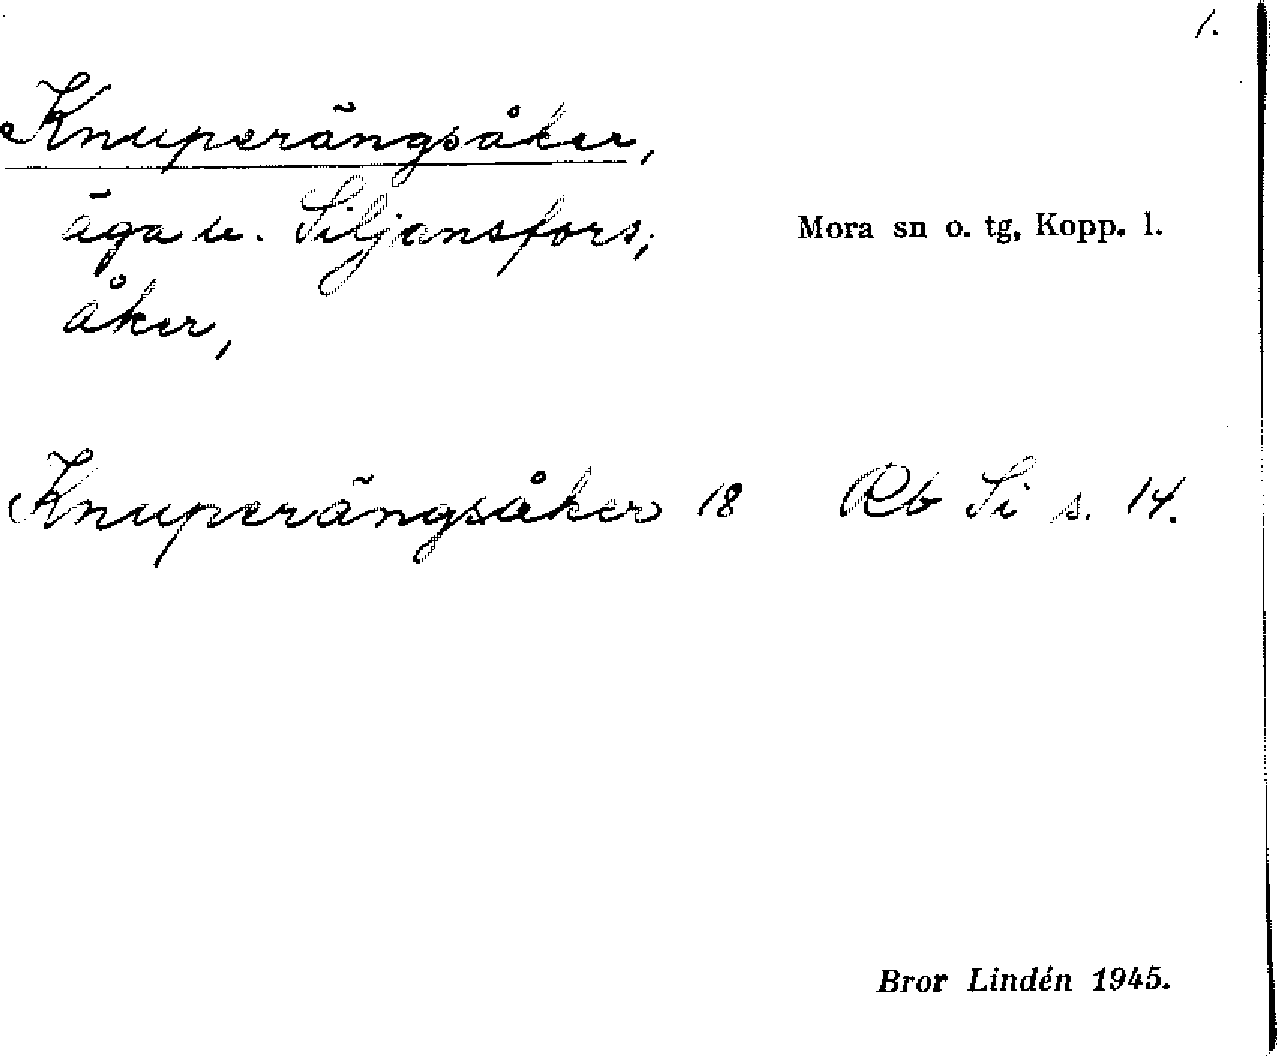 1.
Knuperängsåker,
äga u. Siljansfors;
Mora sn o. tg, Kopp. l.
åker,
Knuperängsåker 18 Rb Si s. 14.
Bror Lindén 1945.